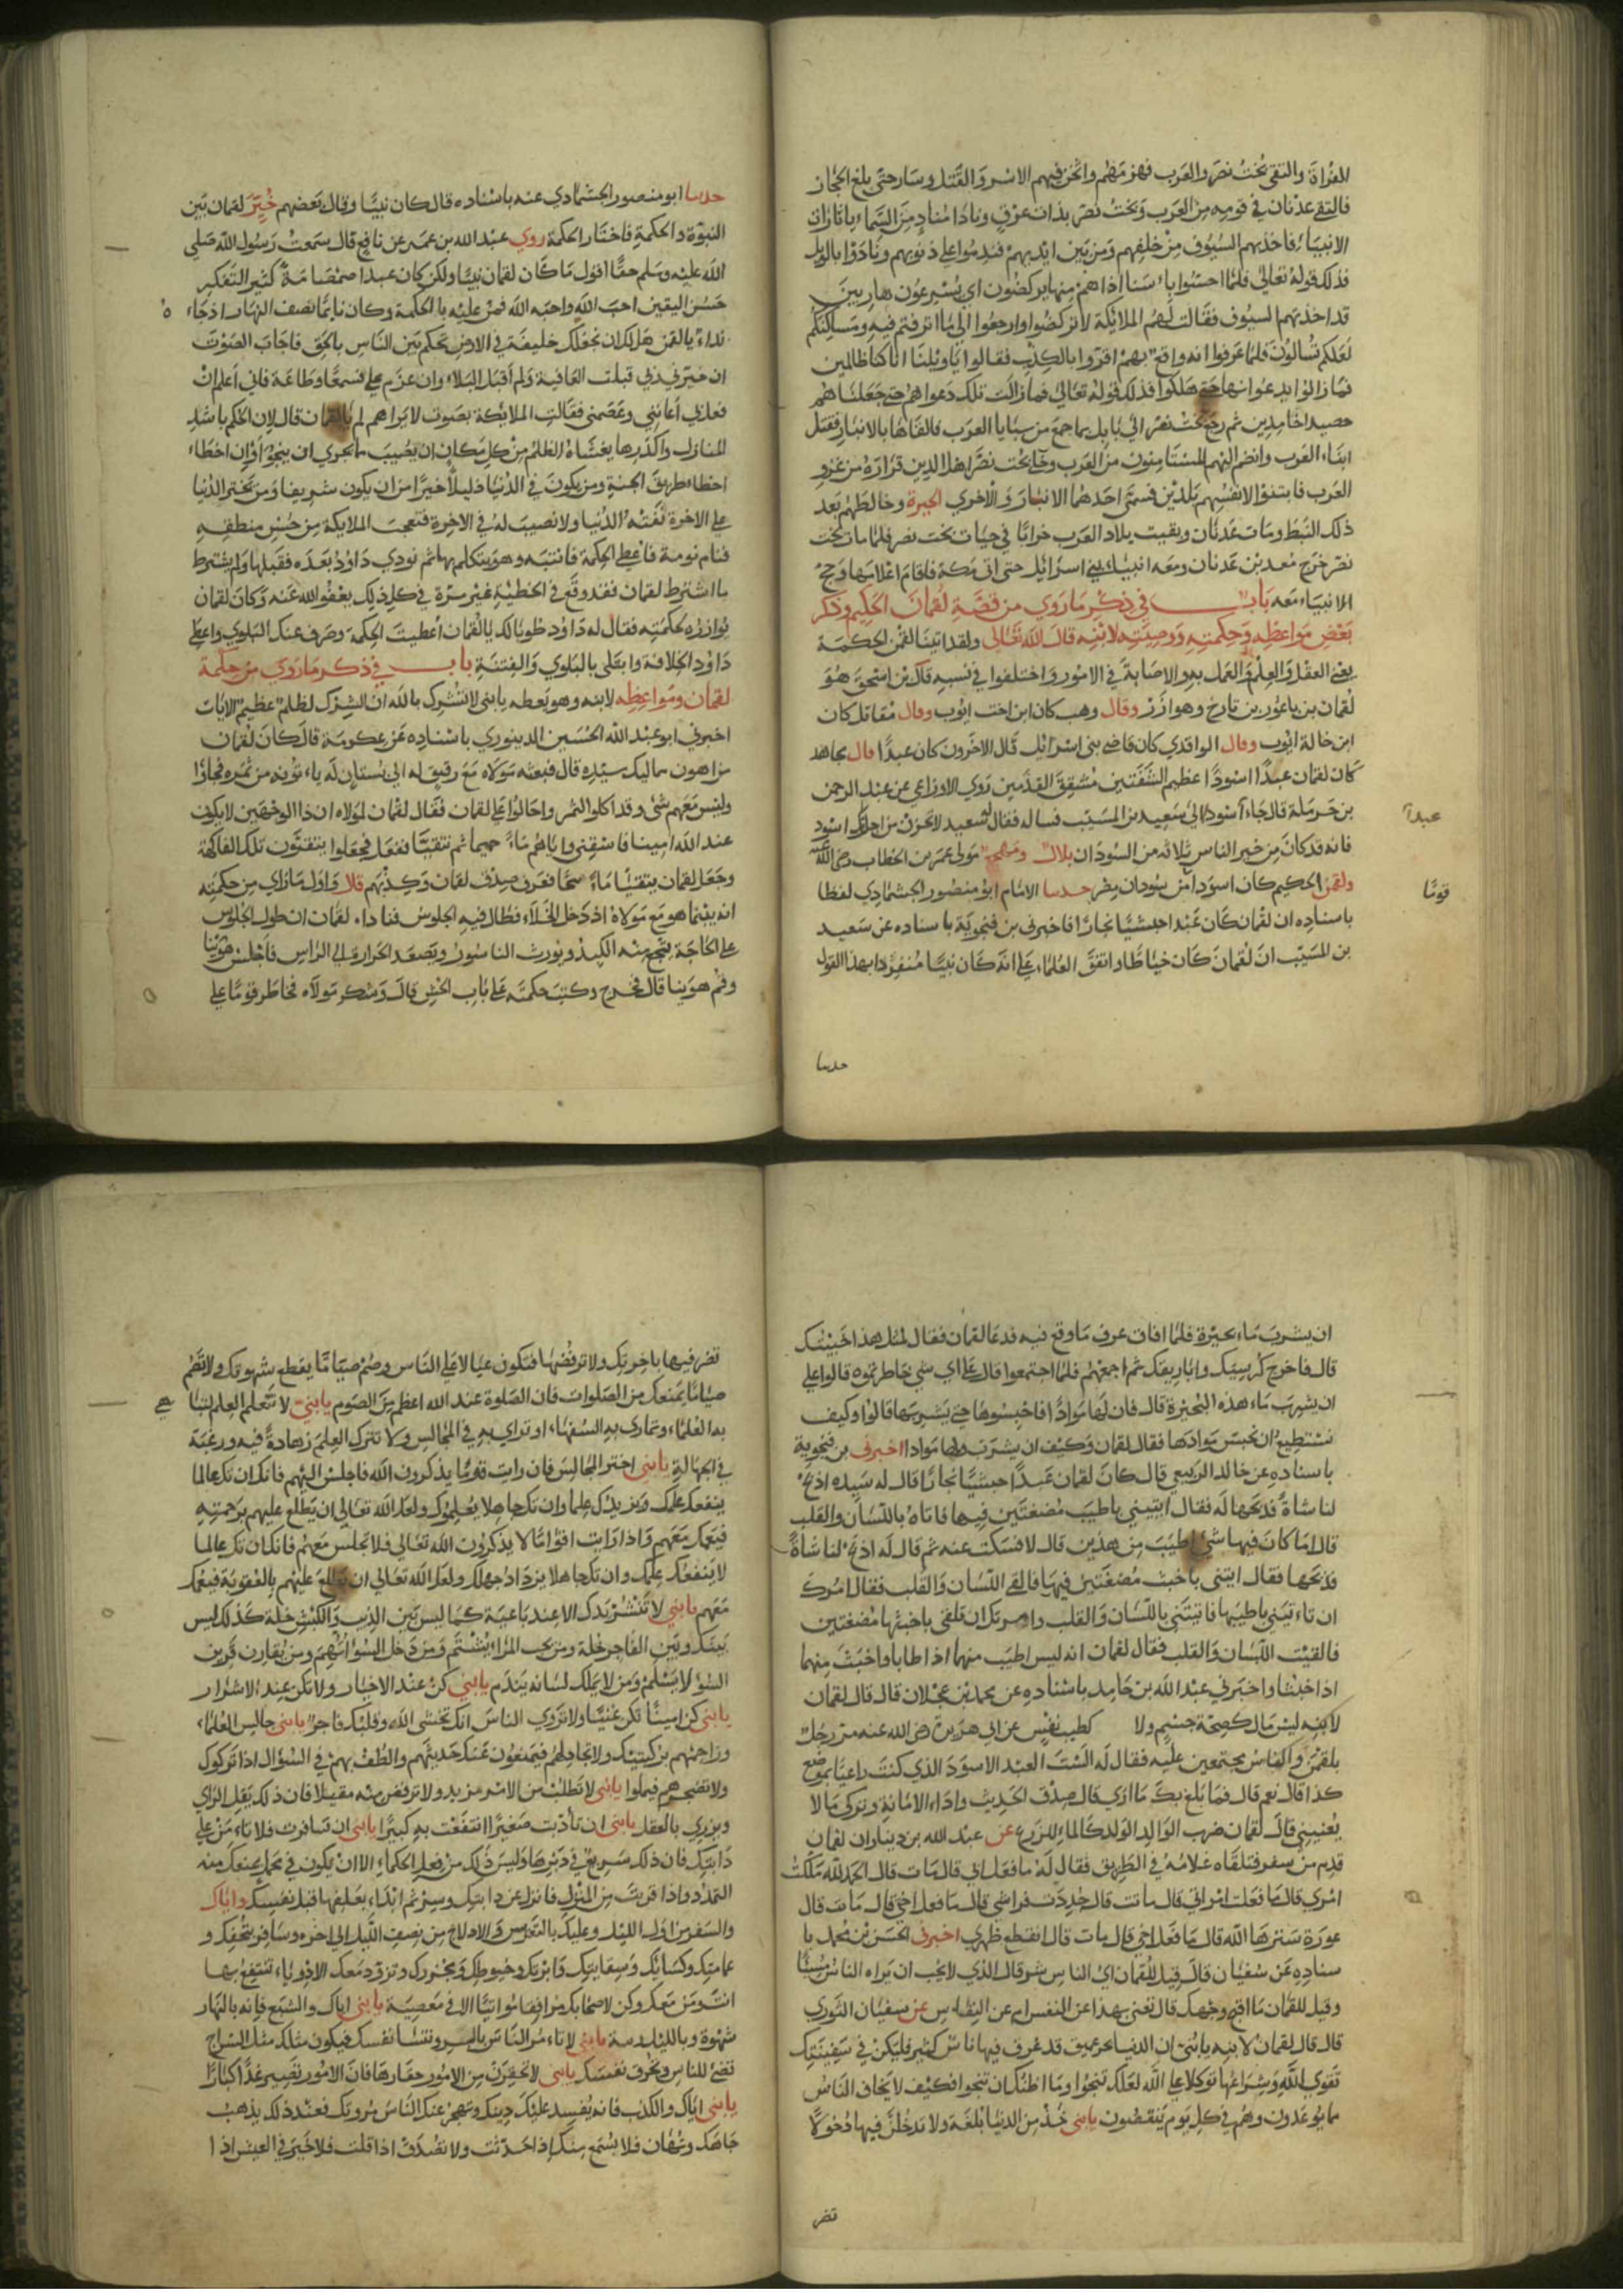 للغزاة والتقى بخت نصر والعرب فهزمهم واثخن فيهم الاسر والقتل وسار حتى بلغ الحجاز
فالتقى عدنان في قومه من العرب وبخت نصر بذات عرق ونادا مناد من السماء يا ثارات
الانبياء فاخذتهم السيوف من خلفهم ومن بين ايديهم فندموا على ذنوبهم ونادوا بالويل
فذلك قوله تعالى فلما احسوا باسنا اذا هم منها يركضون اي يسرعون هاربين
قد اخذتهم السيوف فقالت لهم الملائكة لا تركضوا وارجعوا الى ما اترفتم فيه ومساكنكم
لعلكم تسالون فلما عرفوا انه واقع بهم اقروا بالكذب فقالوا يا ويلنا انا كنا ظالمين
فما زالوا يدعوا بها حتى هلكوا فذلك قوله تعالى فما زالت تلك دعواهم حتى جعلناهم
حصيدا خامدين ثم رجع بخت نصر الى بابل بما جمع من سبايا العرب فالقاها بالانبار فقتل
ابناء العرب وانضم اليهم المستامنون من العرب وخلى بخت نصر اهل الدين قراره من غزو
العرب فابتنوا لانفسهم بلدتين فسمى احدهما الانبار والاخرى الحيرة وخالطهم بعد
ذلك النبط ومات عدنان وبقيت بلاد العرب خرابا في حياة بخت نصر فلما مات بخت
نصر خرج معد بن عدنان ومعه انبياء بني اسرائيل حتى اتى مكة فاقام اعلامها وحج
الانبياء معه باب في ذكر ما روي من قصة لقمان الحكيم وذكر
بعض مواعظه وحكمته ووصيته لابنه قال الله تعالى ولقد اتينا لقمن الحكمة
يعني العقل والعلم والعمل به والاصابة في الامور واختلفوا في نسبه قال بن اسحق هو
لقمان بن باعور بن تارخ وهو ازر وقال وهب كان ابن اخت ايوب وقال مقاتل كان
ابن خالة ايوب وقال الواقدي كان قاضي بني اسرائيل قال الاخرون كان عبدا قال مجاهد
كان لقمان عبدا اسودا عظيم الشفتين متشقق القدمين روى الاوزاعي عن عبد الرحمن
بن حرملة قال جاء اسود الى سعيد بن المسيب فساله فقال له سعيد لا تحزن من اجل انك اسود
عبدا
فانه قد كان من خير الناس ثلاثه من السودان بلال ومهجع مولى عمر بن الخطاب رضي الله عنه
ولقمن الحكيم كان اسودا من سودان مصر حدثنا الامام ابو منصور الجشمادي لفظا
قوتا
باسناده ان لقمان كان عبدا حبشيا نجارا فاخبرني بن فنجويه باسناده عن سعيد
بن المسيب ان لقمان كان خياطا واتفق العلماء على انه كان نبيا منفردا بهذا القول
حدثنا
حدثنا ابو منصور الجشمادي عنه باسناده قال كان نبيا وقال بعضهم خير لقمان بين
النبوة والحكمة فاختار الحكمة روى عبد الله بن عمر عن نافع قال سمعت رسول الله صلى
الله عليه وسلم حقا اقول ما كان لقمان نبيا ولكن كان عبدا صمصامة كثير التفكير
حسن اليقين احب الله واحبه الله فمن عليه بالحكمة وكان نايما نصف النهار اذ جاءه
نداء يا لقمن هل لك ان نجعلك خليفة في الارض تحكم بين الناس بالحق فاجاب الصوت
ان خيرني ربي قبلت العافية ولم اقبل البلاء وان عزم علي فسمعا وطاعة فاني اعلم ان
فعل بي اعانني وعصمني فقالت الملائكة بصوت لا يراهم لم يا لقمان قال لان الحكم باشد
المنازل واكدرها يغشاه الظلم من كل مكان ان يصيب فبالحري ان ينجوا وان اخطاء
اخطا طريق الجنة ومن يكون في الدنيا ذليلا خيرا من ان يكون شريفا ومن تخير الدنيا
على الاخرة تفته الدنيا ولا نصيب له في الاخرة فتعجب الملايكة من حسن منطقه
فنام نومة فاعطي الحكمة فانتبه وهو يتكلم بها ثم نودي داود بعده فقبلها ولم يشترط
ما اشترط لقمان فقد وقع في الخطيئة غير مرة في كل ذلك يعفوا الله عنه وكان لقمان
يوازره بحكمته فقال له داود طوبا لك يا لقمان اعطيت الحكمة وصرف عنك البلوي واعطي
داود الخلافة وابتلي بالبلوي والفتنة باب في ذكر ما روي من حكمة
لقمان ومواعظه لابنه وهو يعظه يا بني لا تشرك بالله ان الشرك لظلم عظيم الايات
اخبرني ابو عبد الله الحسين الدينوري باسناده عن عكرمة قال كان لقمان
من اهون مماليك سيده قال فبعثه مولاه مع رفيق له الى بستان له ياتونه من ثمره فجاوا
وليس معهم شي وقد اكلوا الثمر واحالوا على لقمان فقال لقمان لمولاه ان ذا الوجهين لا يكون
عند الله امينا فاسقني واياهم ماء حميما ثم نتقيا ففعل فجعلوا يتقيون تلك الفاكهة
وجعل لقمان يتقيا ماء محا فعرف صدق لقمان وكذبهم قال واول ما راي من حكمته
انه بينما هو مع مولاه اذ دخل الخلاء فطال فيه الجلوس فناداه لقمان ان طول الجلوس
على الحاجة يتجع منه الكبد ويورث الناسور ويصعد الحرارة الى الراس فاجلس هوينا
وقم هوينا قال فخرج وكتب حكمته على باب الحش قال وسكر مولاه فخاطر قوما على
ان يشرب ماء بحيرة فلما افاق عرف ما وقع فيه فدعا لقمان فقال لمثل هذا خبيتك
قال فاخرج كرسيك واباريقك ثم اجمعهم فلما اجتمعوا قال على اي شي خاطرتموه قالوا على
ان يشرب ماء هذه البحيرة قال فان لها موادا فاحبسوها حتى يشربها قالوا وكيف
نستطيع ان نحبس موادها فقال لقمان وكيف ان يشرب ولها موادا اخبرني بن فنجوية
باسناده عن خالد الربيعي قال كان لقمان عبدا حبشيا نجارا قال له سيده اذبح
لنا شاة فذبحها له فقال ايتيني باطيب مضغتين فيها فاتاه باللسان والقلب
قال اما كان فيها شي اطيب من هذين قال لا فسكت عنه ثم قال له اذبح لنا شاة
فذبحها فقال ايتني باخبث مضغتين فيها فالقى اللسان والقلب فقال امرك
ان تاتيني باطيبها فاتيتني باللسان والقلب وامرتك ان تلقى باخبثها مضغتين
فالقيت اللسان والقلب فقال لقمان انه ليس اطيب منهما اذا طابا واخبث منهما
اذا خبثا واخبرني عبد الله بن حامد باسناده عن محمد بن عجلان قال قال لقمان
لابنه ليس مال كصحة جسم ولا كطيب نفس عن ابي هريرة رضي الله عنه مر رجل
بلقمن والناس مجتمعين عليه فقال له الست العبد الاسود الذي كنت راعيا بموضع
كذا قال نعم قال فما بلغ بك ما ارى قال صدق الحديث واداء الامانة وتركي ما لا
يعنيني قال لقمان ضرب الوالد الولد كالماء للزرع عن عبد الله بن دينار ان لقمان
قدم من سفر فتلقاه غلامه في الطريق فقال له ما فعل ابي قال مات قال الحمد لله ملكت
امري قال ما فعلت امراتي قال ماتت قال جددت فراشي قال ما فعل اختي قال ماتت قال
عورة سترها الله قال ما فعل اخي قال مات قال انقطع ظهري اخبرني الحسن بن محمد با
سناده عن سفيان قال قيل للقمان اي الناس شر قال الذي لا يحب ان يراه الناس مسيئا
وقيل للقمان ما اقبح وجهك قال تعني بهذا عن النفس ام عن النقاش عن سفيان الثوري
قال قال لقمان لابنه يا بني ان الدنيا بحر عميق قد غرق فيها ناس كثير فليكن في سفينتك
تقوي الله وشراعها توكلا على الله لعلك تنجوا وما اظنك ان تنجوا فكيف لا يخاف الناس
ما يوعدون وهم في كل يوم ينقصون يا بني خذ من الدنيا بلغة ولا تدخلن فيها دخولا
تضر
تضر فيها باخرتك ولا ترفضها فتكون عيالا على الناس وصم صياما يقطع شهوتك ولا تصم
صياما يمنعك من الصلوات فان الصلوة عند الله اعظم من الصوم يا بني لا تتعلم العلم لتباهي
به العلماء وتماري به السفهاء او تراي به في المجالس ولا تترك العلم زهادة فيه ورغبة
في الجهالة يا بني اختر المجالس فان رايت قوما يذكرون الله فاجلس اليهم فانك ان تك عالما
ينفعك علمك ويزيدك علما وان تك جاهلا يعلموك ولعل الله تعالى ان يطلع عليهم برحمته
فيعمك معهم واذا رايت اقواما لا يذكرون الله تعالى فلا تجلس معهم فانك ان تك عالما
لا ينفعك علمك وان تك جاهلا يزداد جهلك ولعل الله تعالى ان يطلع عليهم بالعقوبة فيعمك
معهم يا بني لا تنشر بزك الا عند باغيه كما ليس بين الذيب والكبش خلة كذلك ليس
بينك وبين الفاجر خلة ومن يحب المراء يشتم ومن دخل السوء اتهم ومن يقارن قرين
السوء لا يسلم ومن لا يملك لسانه يندم يا بني كن عند الاخيار ولا تكن عند الاشرار
يا بني كن امينا تكن غنيا ولا تروي الناس انك تخشى الله وقلبك فاجر يا بني جالس العلماء
وزاحمهم بركبتيك ولا تجادلهم فيمنعون عنك حديثهم والطف بهم في السؤال اذا تركوك
ولا تضجرهم فيملوا يا بني لا تطلبن من الامر مزيد ولا ترفض منه مقبلا فان ذلك يقل الراي
ويزري بالعقل يا بني ان تادبت صغيرا انتفعت به كبيرا يا بني ان سافرت فلا تامن على
دابتك فان ذلك سريع في دبرها وليس ذلك من فعل الحكماء الا ان يكون في محمل يمنعك منه
التمدد واذا قربت من المنزل فانزل عن دابتك وسر ثم ابداء بعلفها قبل نفسك واياك
والسفر من اول الليل وعليك بالتعريس والادلاج من نصف الليل الى اخره وسافر بخفك و
عمامتك وكسائك وسقايتك وابرتك وخيوطك ومخرزك وتزود معك الادوياء تنتفع بها
انت ومن معك وكن لاصحابك مرافقا مواتيا الا في معصية يا بني اياك والشبع فانه بالنهار
شهوة وبالليل يا بني لا تامر الناس بالبر وتنسا نفسك فيكون مثلك مثل السراج
تضئ للناس وتحرق نفسك يا بني لا تحقرن من الامور صغارها فان الامور تصير غدا كبارا
يا بني اياك والكذب فانه يفسد عليك دينك وتهجر عند الناس مروتك فعند ذلك يذهب
جاهك وتهان فلا يسمع منك اذا حدثت ولا تصدق اذا قلت فلا خير في العيش اذا